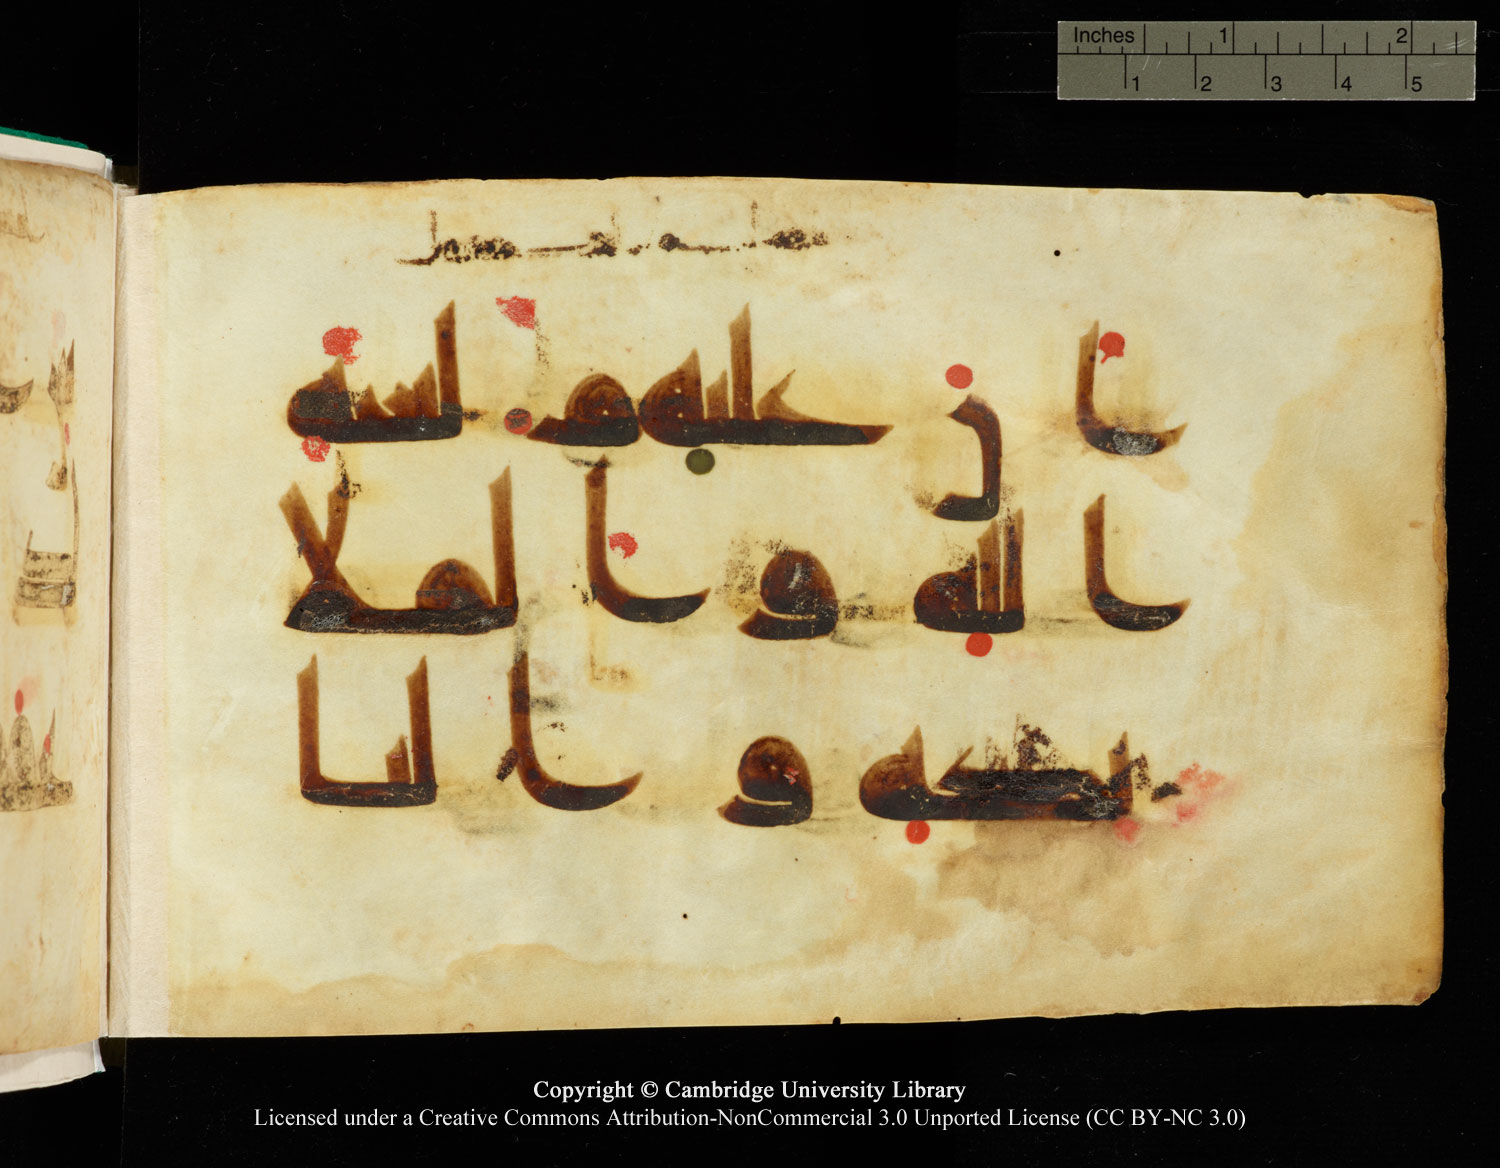 Inches 1 2
1 2 3 4 5
ان عليهم لعنه
الله والملا
ىكه والنا
Copyright © Cambridge University Library
Licensed under a Creative Commons Attribution-NonCommercial 3.0 Unported License (CC BY-NC 3.0)